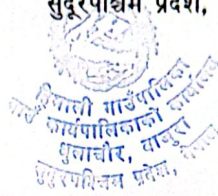 सुदूरपश्चिम प्रदेश,
हिमाली गाउँपालिका
गाउँ कार्यपालिकाको कार्यालय
धुलाचौर, बाजुरा
सुदुरपश्चिम प्रदेश, नेपाल